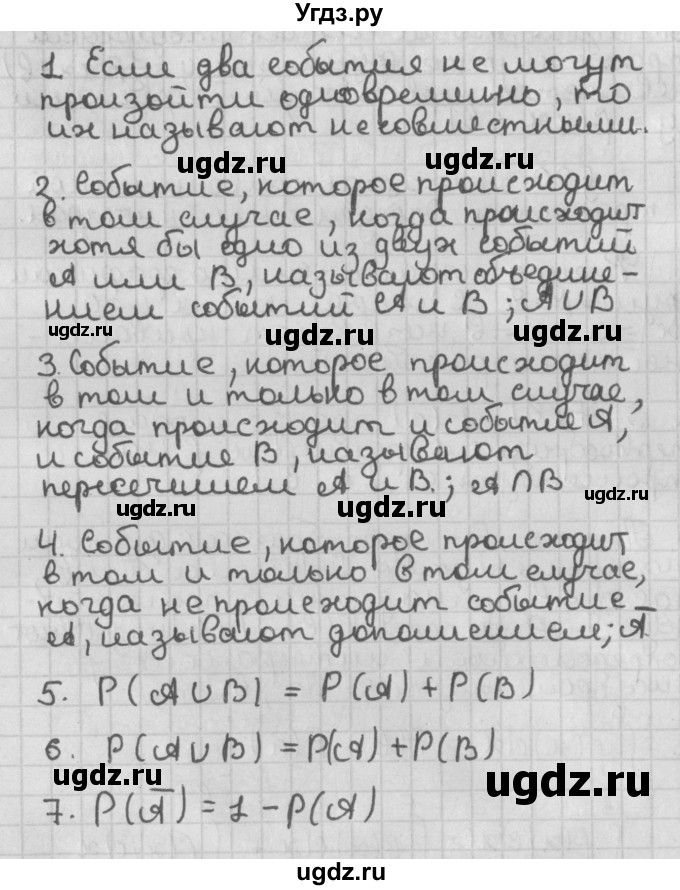 Угдз.ру
1 Если два события не могут
произойти одновременно, то
их называют несовместными.
ugdz.ru ugdz.ru
2. Событие, которое происходит
в том случае, когда происходит
хотя бы одно из двух событий
A или B, называют объедине-
нием событий A и B ; A∪B
ugdz.ru ugdz.ru ugdz.ru
3. Событие, которое происходит
в том и только в том случае,
когда происходит и событие A,
и событие B, называют
пересечением A и B.; A∩B
ugdz.ru ugdz.ru ugdz.ru
4. Событие, которое происходит
в том и только в том случае,
когда не происходит событие
A, называют дополнением; A̅
ugdz.ru ugdz.ru
5. P(A∪B) = P(A) + P(B)
6. P(A∪B) = P(A) + P(B)
ugdz.ru ugdz.ru ugdz.ru
7. P(A̅) = 1 - P(A)
ugdz.ru